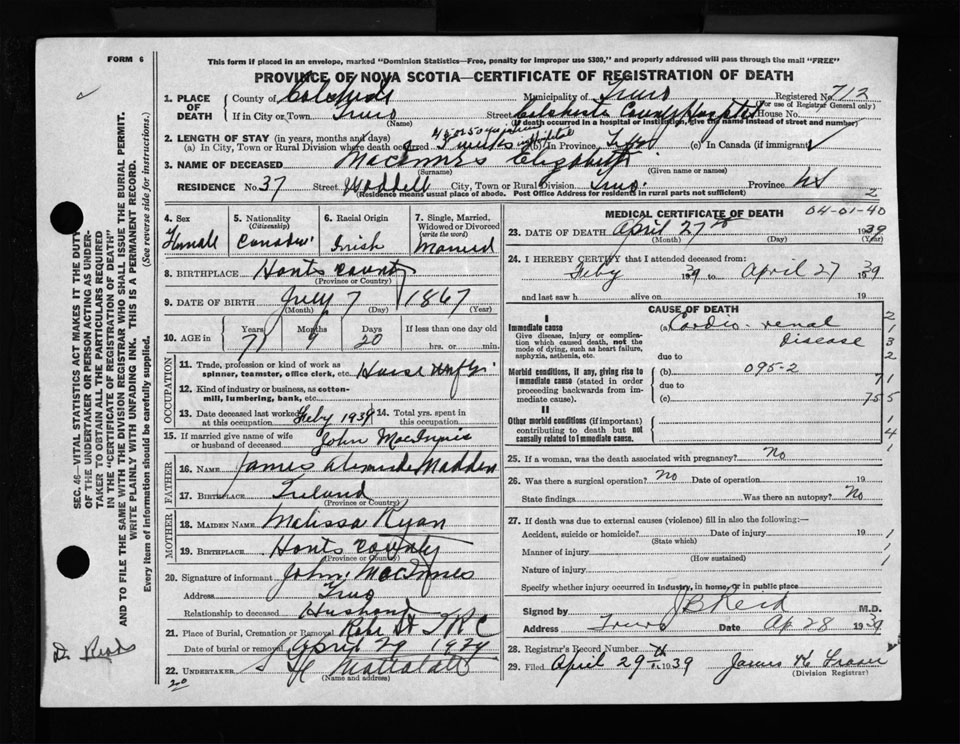 FORM 6
This form if placed in an envelope, marked "Dominion Statistics—Free, penalty for improper use $300," and properly addressed will pass through the mail "FREE"
PROVINCE OF NOVA SCOTIA—CERTIFICATE OF REGISTRATION OF DEATH
1. PLACE OF DEATH County of Municipality of Truro Registered No. 712
(For use of Registrar General only)
If in City or Town Truro Street Colchester County Hospital House No.
(Name) (If death occurred in a hospital or institution, give the name instead of street and number)
2. LENGTH OF STAY (in years, months and days)
(a) In City, Town or Rural Division where death occurred 3 weeks in Hospital (b) In Province (c) In Canada (if immigrant)
3. NAME OF DECEASED MacInnes Elizabeth
(Surname) (Given name or names)
RESIDENCE No. 37 Street Waddell City, Town or Rural Division Truro Province NS
(Residence means usual place of abode. Post Office Address for residents in rural parts not sufficient) 2
4. Sex Female
5. Nationality (Citizenship) Canadian
6. Racial Origin Irish
7. Single, Married, Widowed or Divorced (write the word) Married
8. BIRTHPLACE Hants County
(Province or Country)
9. DATE OF BIRTH July 7 1867
(Month) (Day) (Year)
10. AGE in Years Months Days If less than one day old
71 9 20 hrs. or min.
OCCUPATION
11. Trade, profession or kind of work as spinner, teamster, office clerk, etc. House Wife
12. Kind of industry or business, as cotton-mill, lumbering, bank, etc.
13. Date deceased last worked at this occupation Feby 1939 14. Total yrs. spent in this occupation
15. If married give name of wife or husband of deceased John MacInnis
FATHER
16. NAME James Alexander Madden
17. BIRTHPLACE Ireland
(Province or Country)
MOTHER
18. MAIDEN NAME Melissa Ryan
19. BIRTHPLACE Hants County
(Province or Country)
20. Signature of informant John MacInnes
Address Truro
Relationship to deceased Husband
21. Place of Burial, Cremation or Removal Robie St
Date of burial or removal April 29 1939
22. UNDERTAKER
(Name and address)
MEDICAL CERTIFICATE OF DEATH 04-01-40
23. DATE OF DEATH April 27th 1939
(Month) (Day) (Year)
24. I HEREBY CERTIFY that I attended deceased from:
Feby 1939 to April 27 1939
and last saw h alive on 19
CAUSE OF DEATH
I
Immediate cause (a) Cardio-renal disease
Give disease, injury or complication which caused death, not the mode of dying, such as heart failure, asphyxia, asthenia, etc.
due to
Morbid conditions, if any, giving rise to immediate cause (stated in order proceeding backwards from immediate cause). (b) 095-2
due to
(c)
II
Other morbid conditions (if important) contributing to death but not causally related to immediate cause.
25. If a woman, was the death associated with pregnancy? No
26. Was there a surgical operation? No Date of operation 19
State findings Was there an autopsy? No
27. If death was due to external causes (violence) fill in also the following:—
Accident, suicide or homicide? Date of injury 19
(State which)
Manner of injury
(How sustained)
Nature of injury
Specify whether injury occurred in industry, in home, or in public place
Signed by J B Reid M.D.
Address Truro Date Ap 28 1939
28. Registrar's Record Number
29. Filed April 29th 1939 James K Fraser
(Division Registrar)
SEC. 46—VITAL STATISTICS ACT MAKES IT THE DUTY
OF THE UNDERTAKER OR PERSON ACTING AS UNDER-
TAKER TO OBTAIN ALL THE PARTICULARS REQUIRED
IN THE "CERTIFICATE OF REGISTRATION OF DEATH"
AND TO FILE THE SAME WITH THE DIVISION REGISTRAR WHO SHALL ISSUE THE BURIAL PERMIT.
WRITE PLAINLY WITH UNFADING INK. THIS IS A PERMANENT RECORD.
Every item of information should be carefully supplied. (See reverse side for instructions.)